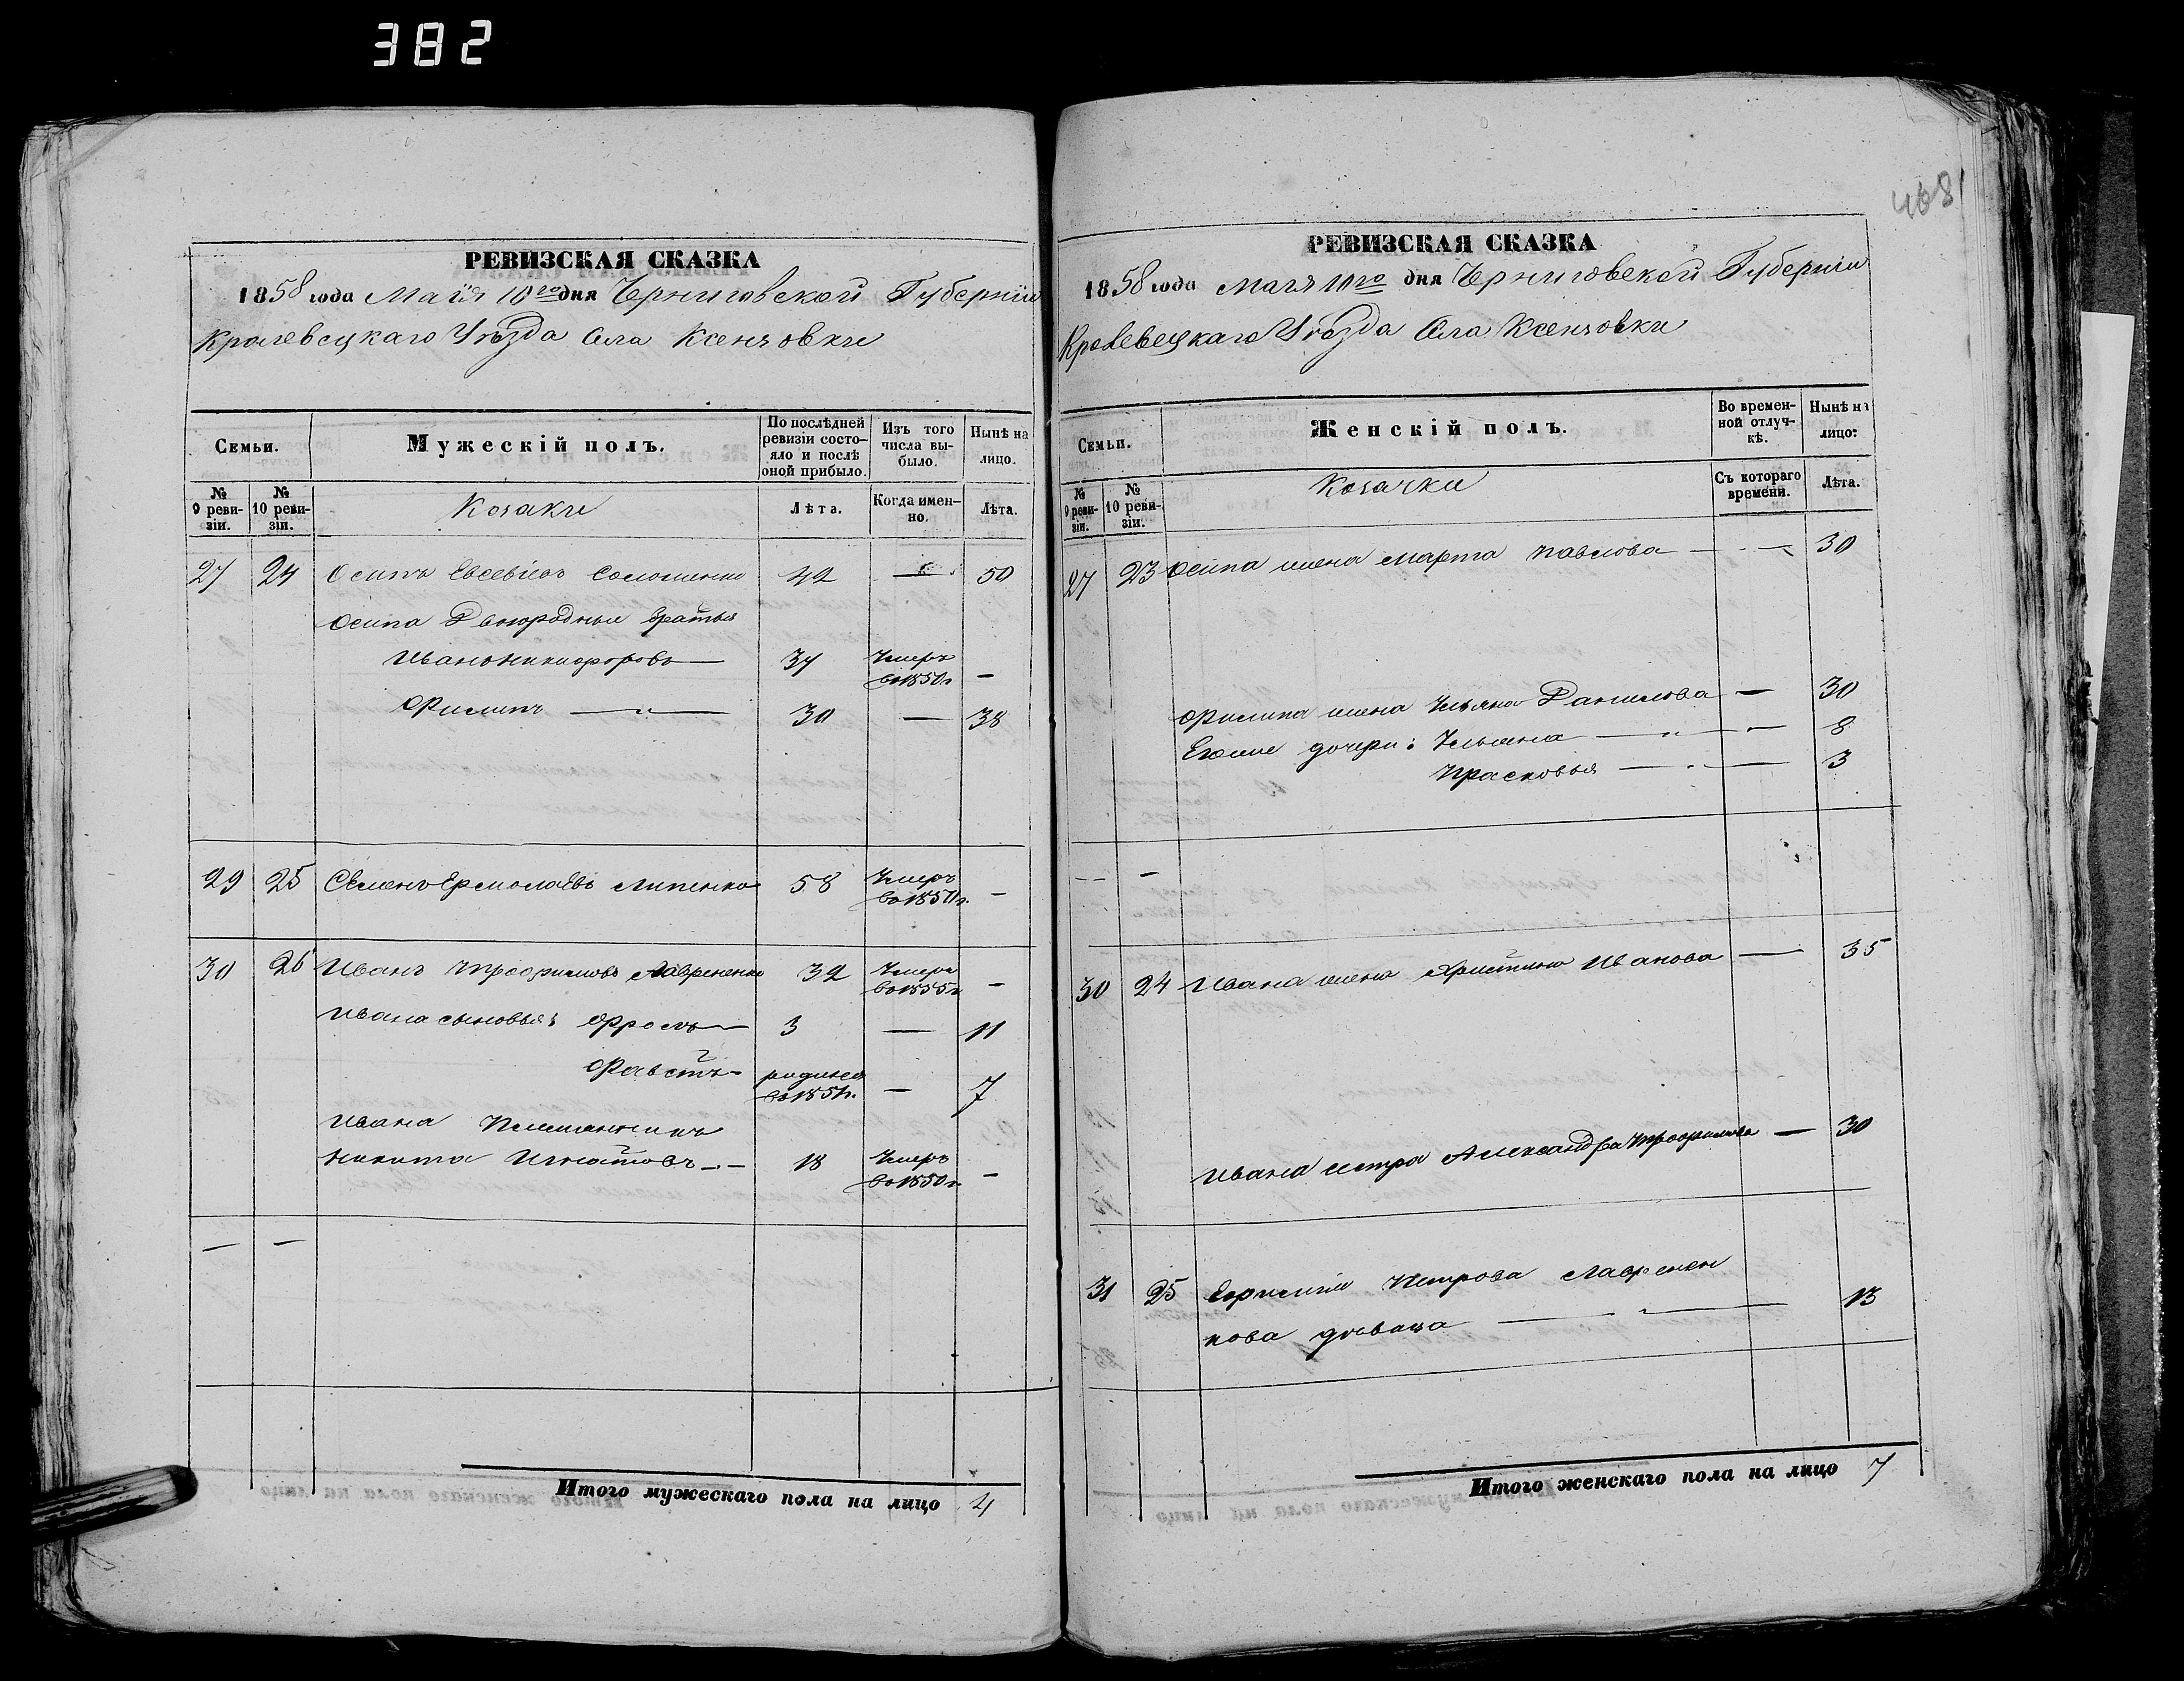 382
468
РЕВИЗСКАЯ СКАЗКА
1858 года Маія 10го дня Черниговской Губерніи
Кролевецкаго Уѣзда Села Ксензовки
Семьи.
Мужескій полъ.
По послѣдней ревизіи состояло и послѣ оной прибыло.
Изъ того числа выбыло.
Нынѣ на лицо.
№ 9 ревизіи.
№ 10 ревизіи.
Козаки
Лѣта.
Когда именно.
Лѣта.
27 24 Осипъ Евсевіевъ Соломенко 42 — 50
Осипа Двоюродные братья
Иванъ Никифоровъ — 34 Умеръ во 1850 г. —
Филипъ — " — 30 — 38
29 25 Семенъ Ермолаевъ Липенко 58 Умеръ во 1850 г. —
30 26 Иванъ Трофимовъ Лавриненко 32 Умеръ во 1855 г. —
Ивана сыновья: Фролъ — 3 — 11
Фавстъ — родился во 1851 г. — 7
Ивана Племянникъ
Никита Игнатовъ — 18 Умеръ во 1850 г. —
— —
Итого мужескаго пола на лицо 4
РЕВИЗСКАЯ СКАЗКА
1858 года Маія 10го дня Черниговской Губерніи
Кролевецкаго Уѣзда Села Ксензовки
Семьи.
Женскій полъ.
Во временной отлучкѣ.
Нынѣ на лицо:
№ 9 ревизіи.
№ 10 ревизіи.
Козачки
Съ котораго времени.
Лѣта.
27 23 Осипа жена Марта Павлова — 30
Филипа жена Ульяна Данилова — 30
Егоже дочери: Ульяна — " — 8
Прасковья — " — 3
— —
30 24 Ивана жена Христина Иванова — 35
Ивана сестра Александра Трофимова — 30
31 25 Евфимія Петрова Лаврenen
кова дѣвица — " — 13
Итого женскаго пола на лицо 7